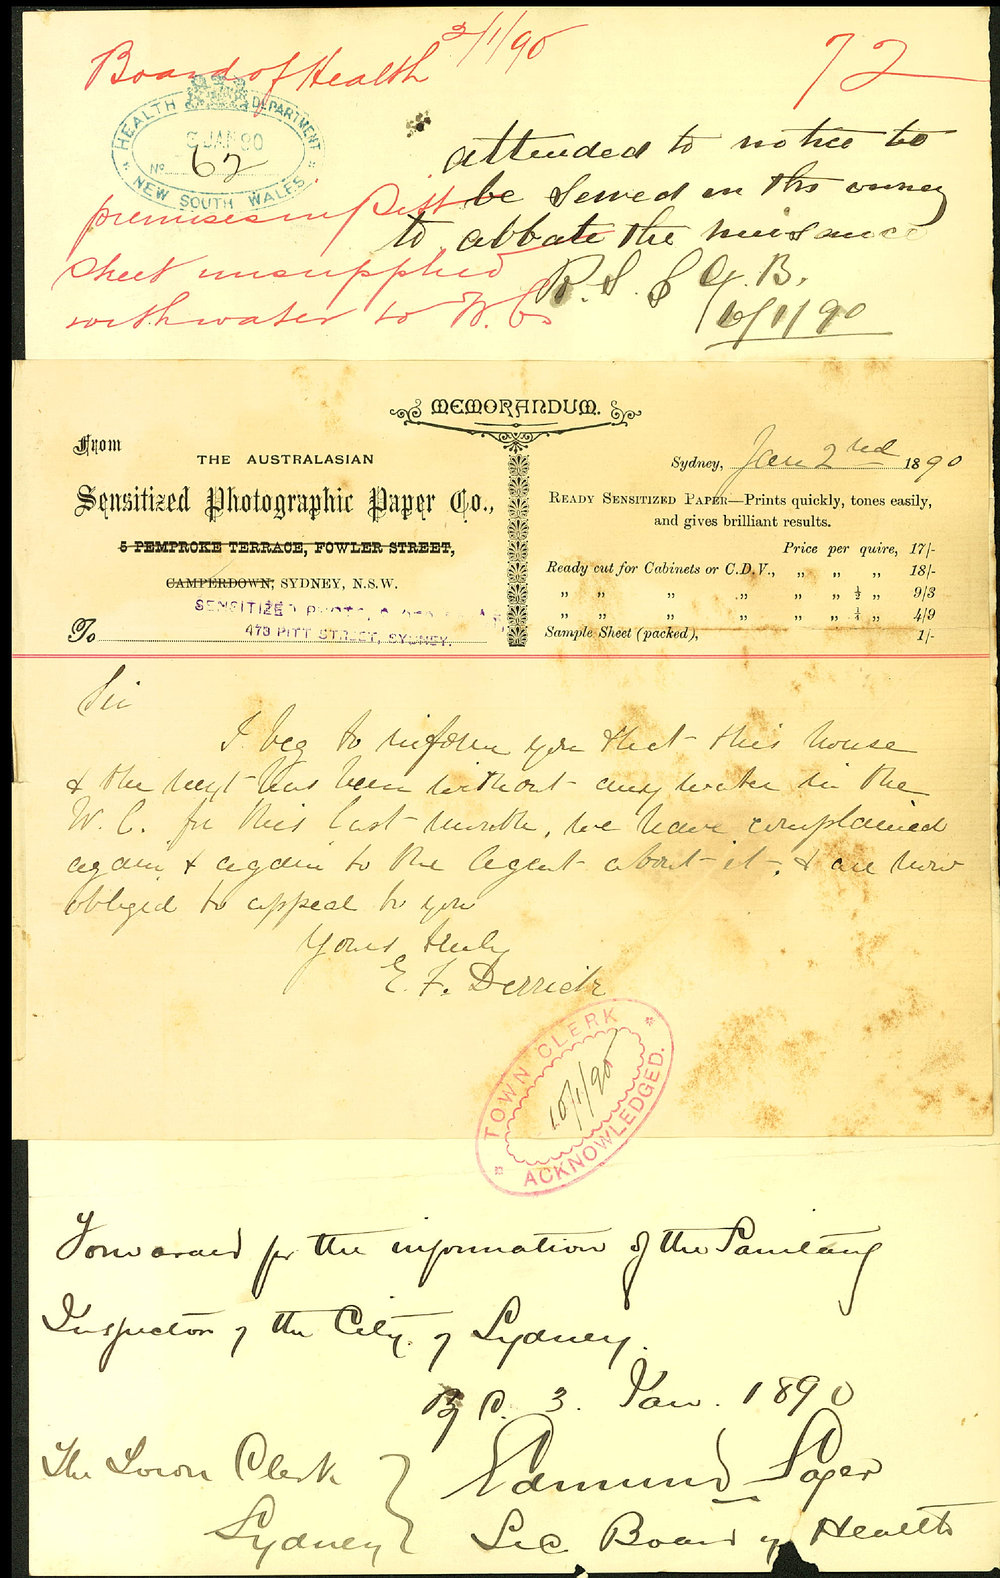 Board of Health 3/1/90
72
HEALTH DEPARTMENT
3 JAN 90
No 62
NEW SOUTH WALES
premises in Pitt
Street unsupplied
with water to W.Cs
attended to notice to
be served on the owner
to abbate the nuisance
6/1/90
MEMORANDUM.
From
THE AUSTRALASIAN
Sensitized Photographic Paper Co.,
5 PEMPROKE TERRACE, FOWLER STREET,
CAMPERDOWN, SYDNEY, N.S.W.
SENSITIZED
473 PITT STREET, SYDNEY.
To
Sydney, Jan 2nd 1890
READY SENSITIZED PAPER—Prints quickly, tones easily,
and gives brilliant results.
Price per quire, 17/-
Ready cut for Cabinets or C.D.V., „ „ „ 18/-
„ „ „ „ „ „ ½ „ 9/3
„ „ „ „ „ „ ¼ „ 4/9
Sample Sheet (packed), 1/-
Sir
I beg to inform you that this house
& the next has been without any water in the
W.C. for this last month, we have complained
again & again to the Agent about it, & are now
obliged to appeal to you
Yours truly
E. F. Derrick
TOWN CLERK
10/1/90
ACKNOWLEDGED.
Forwarded for the information of the Sanitary
Inspector of the City of Sydney.
B.C. 3. Jan. 1890
The Town Clerk
Sydney
Edmund Sager
Sec Board of Health